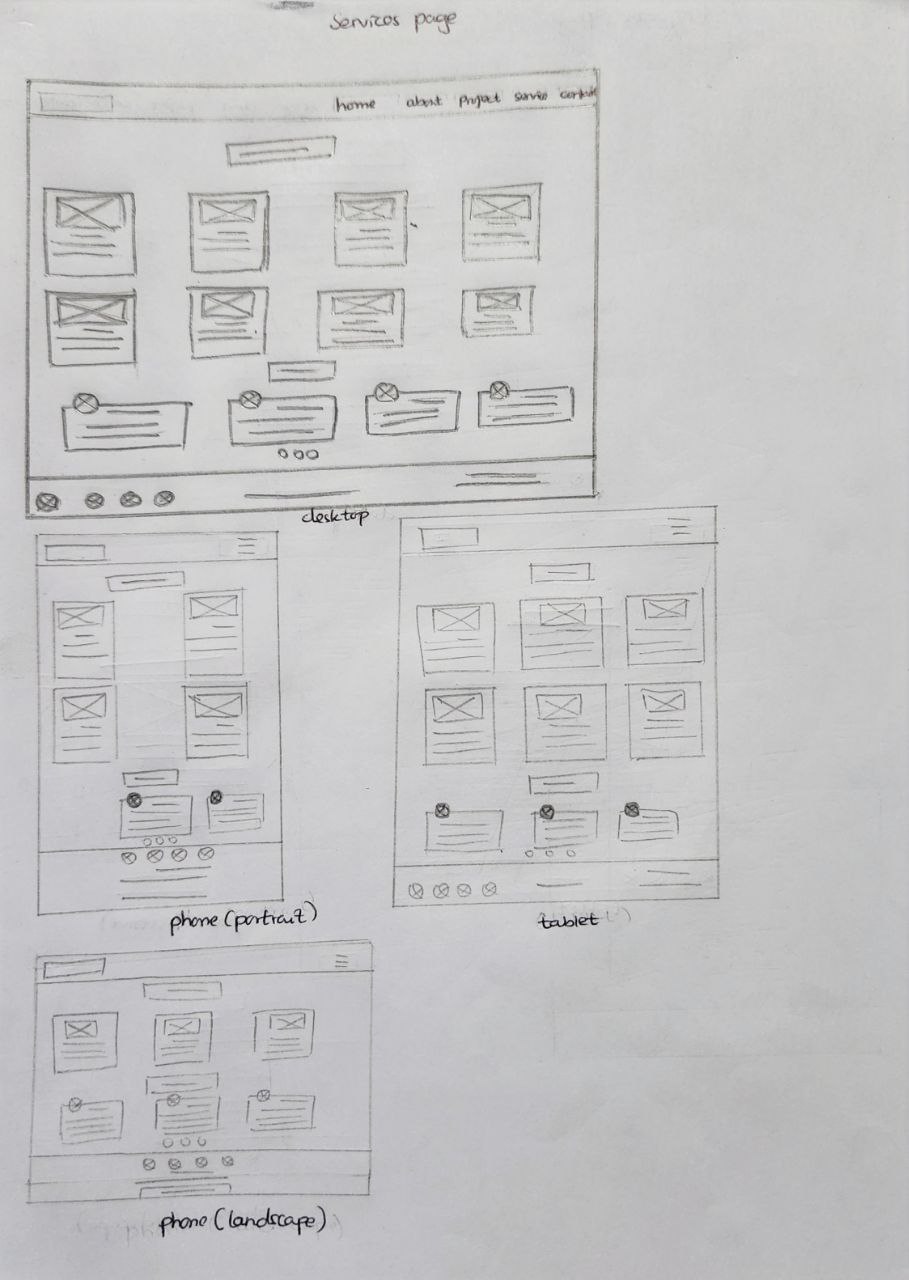 Services page
home about project servies contact
desktop
phone (portrait)
tablet
phone (landscape)